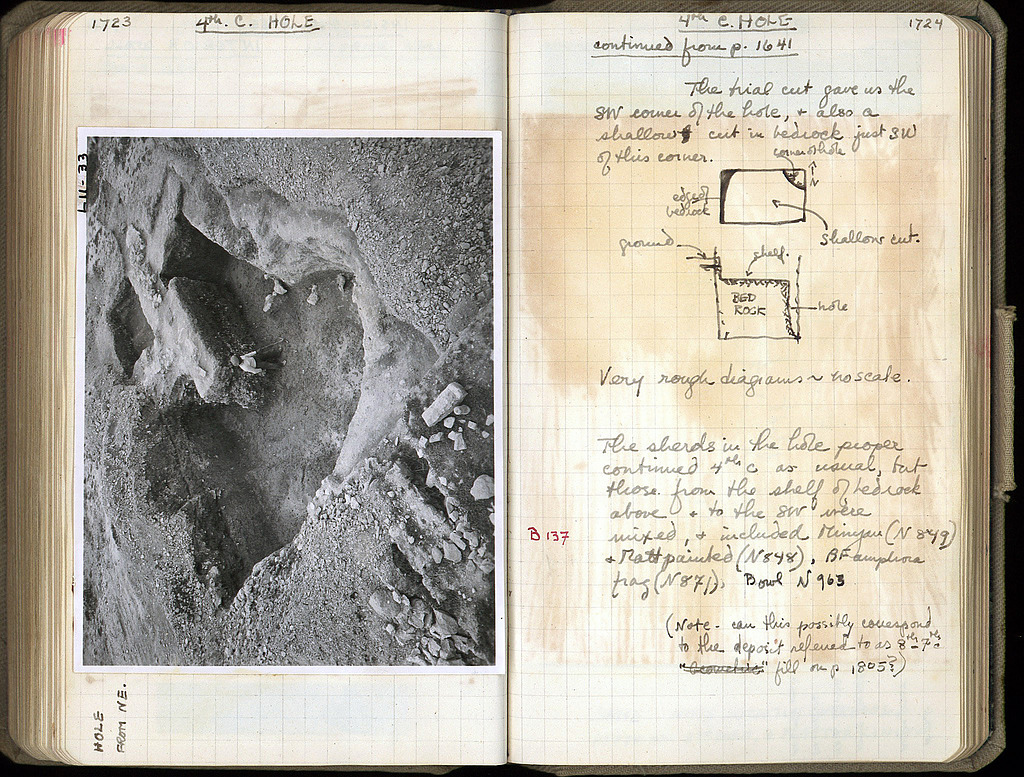 1723
4th. C. HOLE
LII-33
HOLE
FROM NE.
4th C. HOLE
1724
continued from p. 1641
The trial cut gave us the
SW corner of the hole, + also a
shallow cut in bedrock just SW
of this corner.
corner of hole
N
edge of
bedrock
shallow cut.
ground
shelf.
BED
ROCK
hole
Very rough diagrams ~ no scale.
The sherds in the hole proper
continued 4th c as usual, but
those from the shelf of bedrock
above + to the SW were
B 137
mixed, + included Minyan (N 849)
+ Mattpainted (N 848), BF amphora
frag (N 871), Bowl N 963
(Note - can this possibly correspond
to the deposit referred to as 8th-7th c
"Geometric" fill on p 1805?)